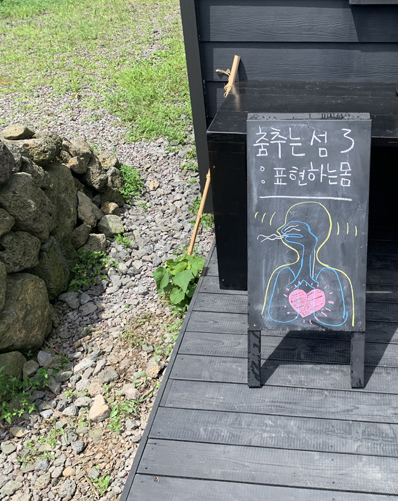 춤추는 섬 3
: 표현하는몸